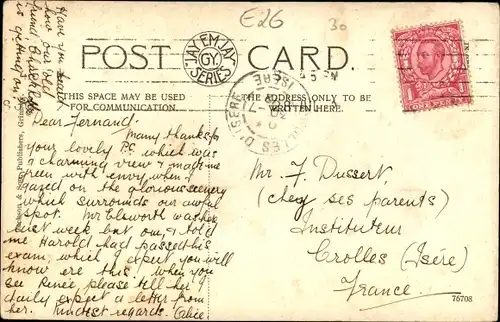 E26
30
POST CARD.
JAY EM JAY
"GY"
SERIES
THIS SPACE MAY BE USED
FOR COMMUNICATION.
THE ADDRESS TO BE
WRITTEN HERE.
Have you
how our old
friend
is getting
Dear Fernand.
Many thanks for
your lovely P.C. which was
a charming view & made me
green with envy when I
gazed on the glorious scenery
which surrounds
spot. Mr Elsworth was here
last week but one, & told
me Harold had passed his
exam, which I expect you will
know ere this. When you
see Renée, please tell her I
daily expect a letter from
her. Kindest regards. Alice
Mr. F. Dussert
(chez ses parents)
Instituteur
Crolles (Isère)
France
76708
& Son, Publishers, Grimsby
CROLLES ISERE
ONE PENNY